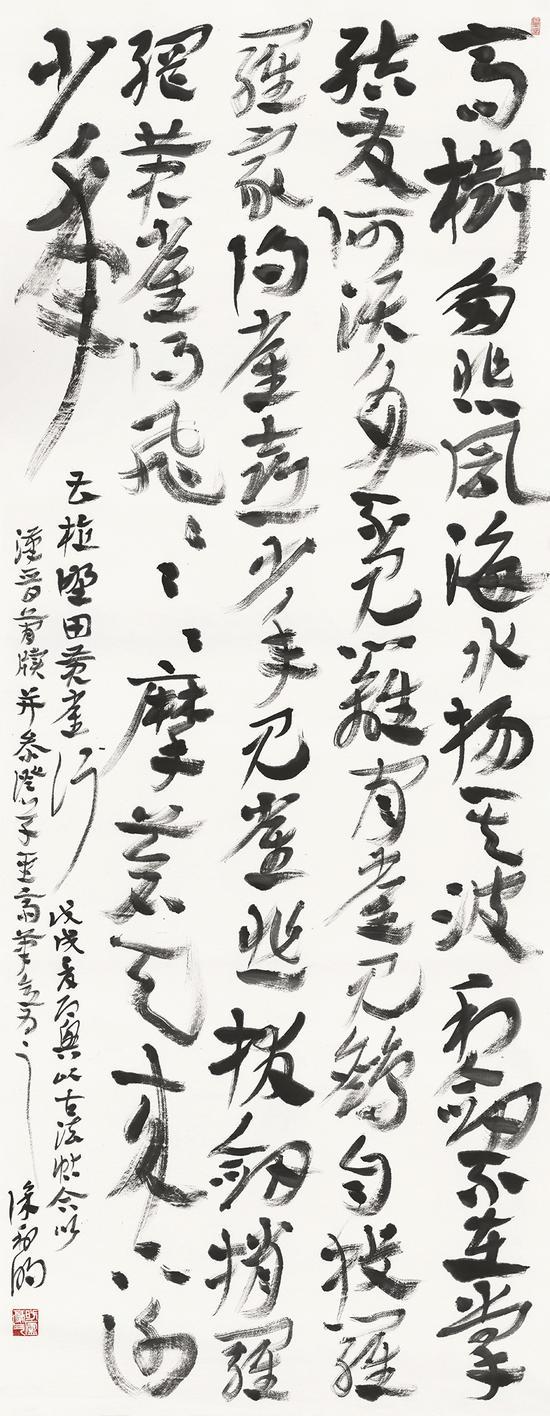 高樹多悲風海水揚其波利劍不在掌
結友何須多不見籬間雀見鷂自投羅
羅家得雀喜少年見雀悲拔劍捎羅
網黃雀得飛〻〻〻摩蒼天來下謝
少年
植野田黃雀行 戊戌 此古法帖今以
漢晉簡牘并參 筆意為之
徐利明